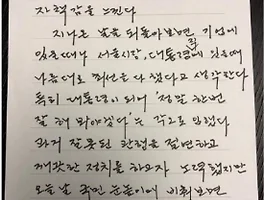 자책감을 느낀다
지나온 날을 되돌아보면, 기업에
있을때나 서울시장, 대통령직에 있을때
나름대로 최선을 다했다고 생각한다
특히 대통령이 되어 '정말 한번
잘 해 봐야겠다'는 각오로 임했다
과거 잘못된 관행을 절연하고
깨끗한 정치를 하고자 노력했지만
오늘 날 국민 눈높이에 비춰보면